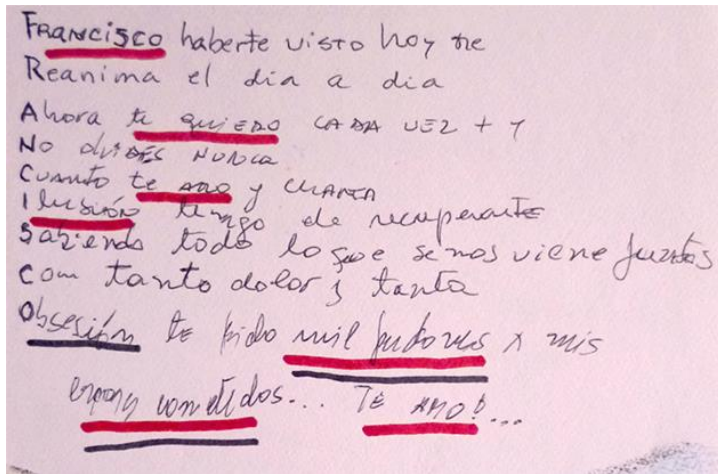 FRANCISCO haberte visto hoy me
Reanima el dia a dia
Ahora te quiERO CADA VEZ + Y
NO olviDES NUNCA
CUANTO te AMO y CUANTA
Ilusión tengo de recuperarte
Sabiendo todo lo que se nos viene juntos
Con tanto dolor y tanta
Obsesión te pido mil perdones x mis
errores cometidos... TE AMO!...